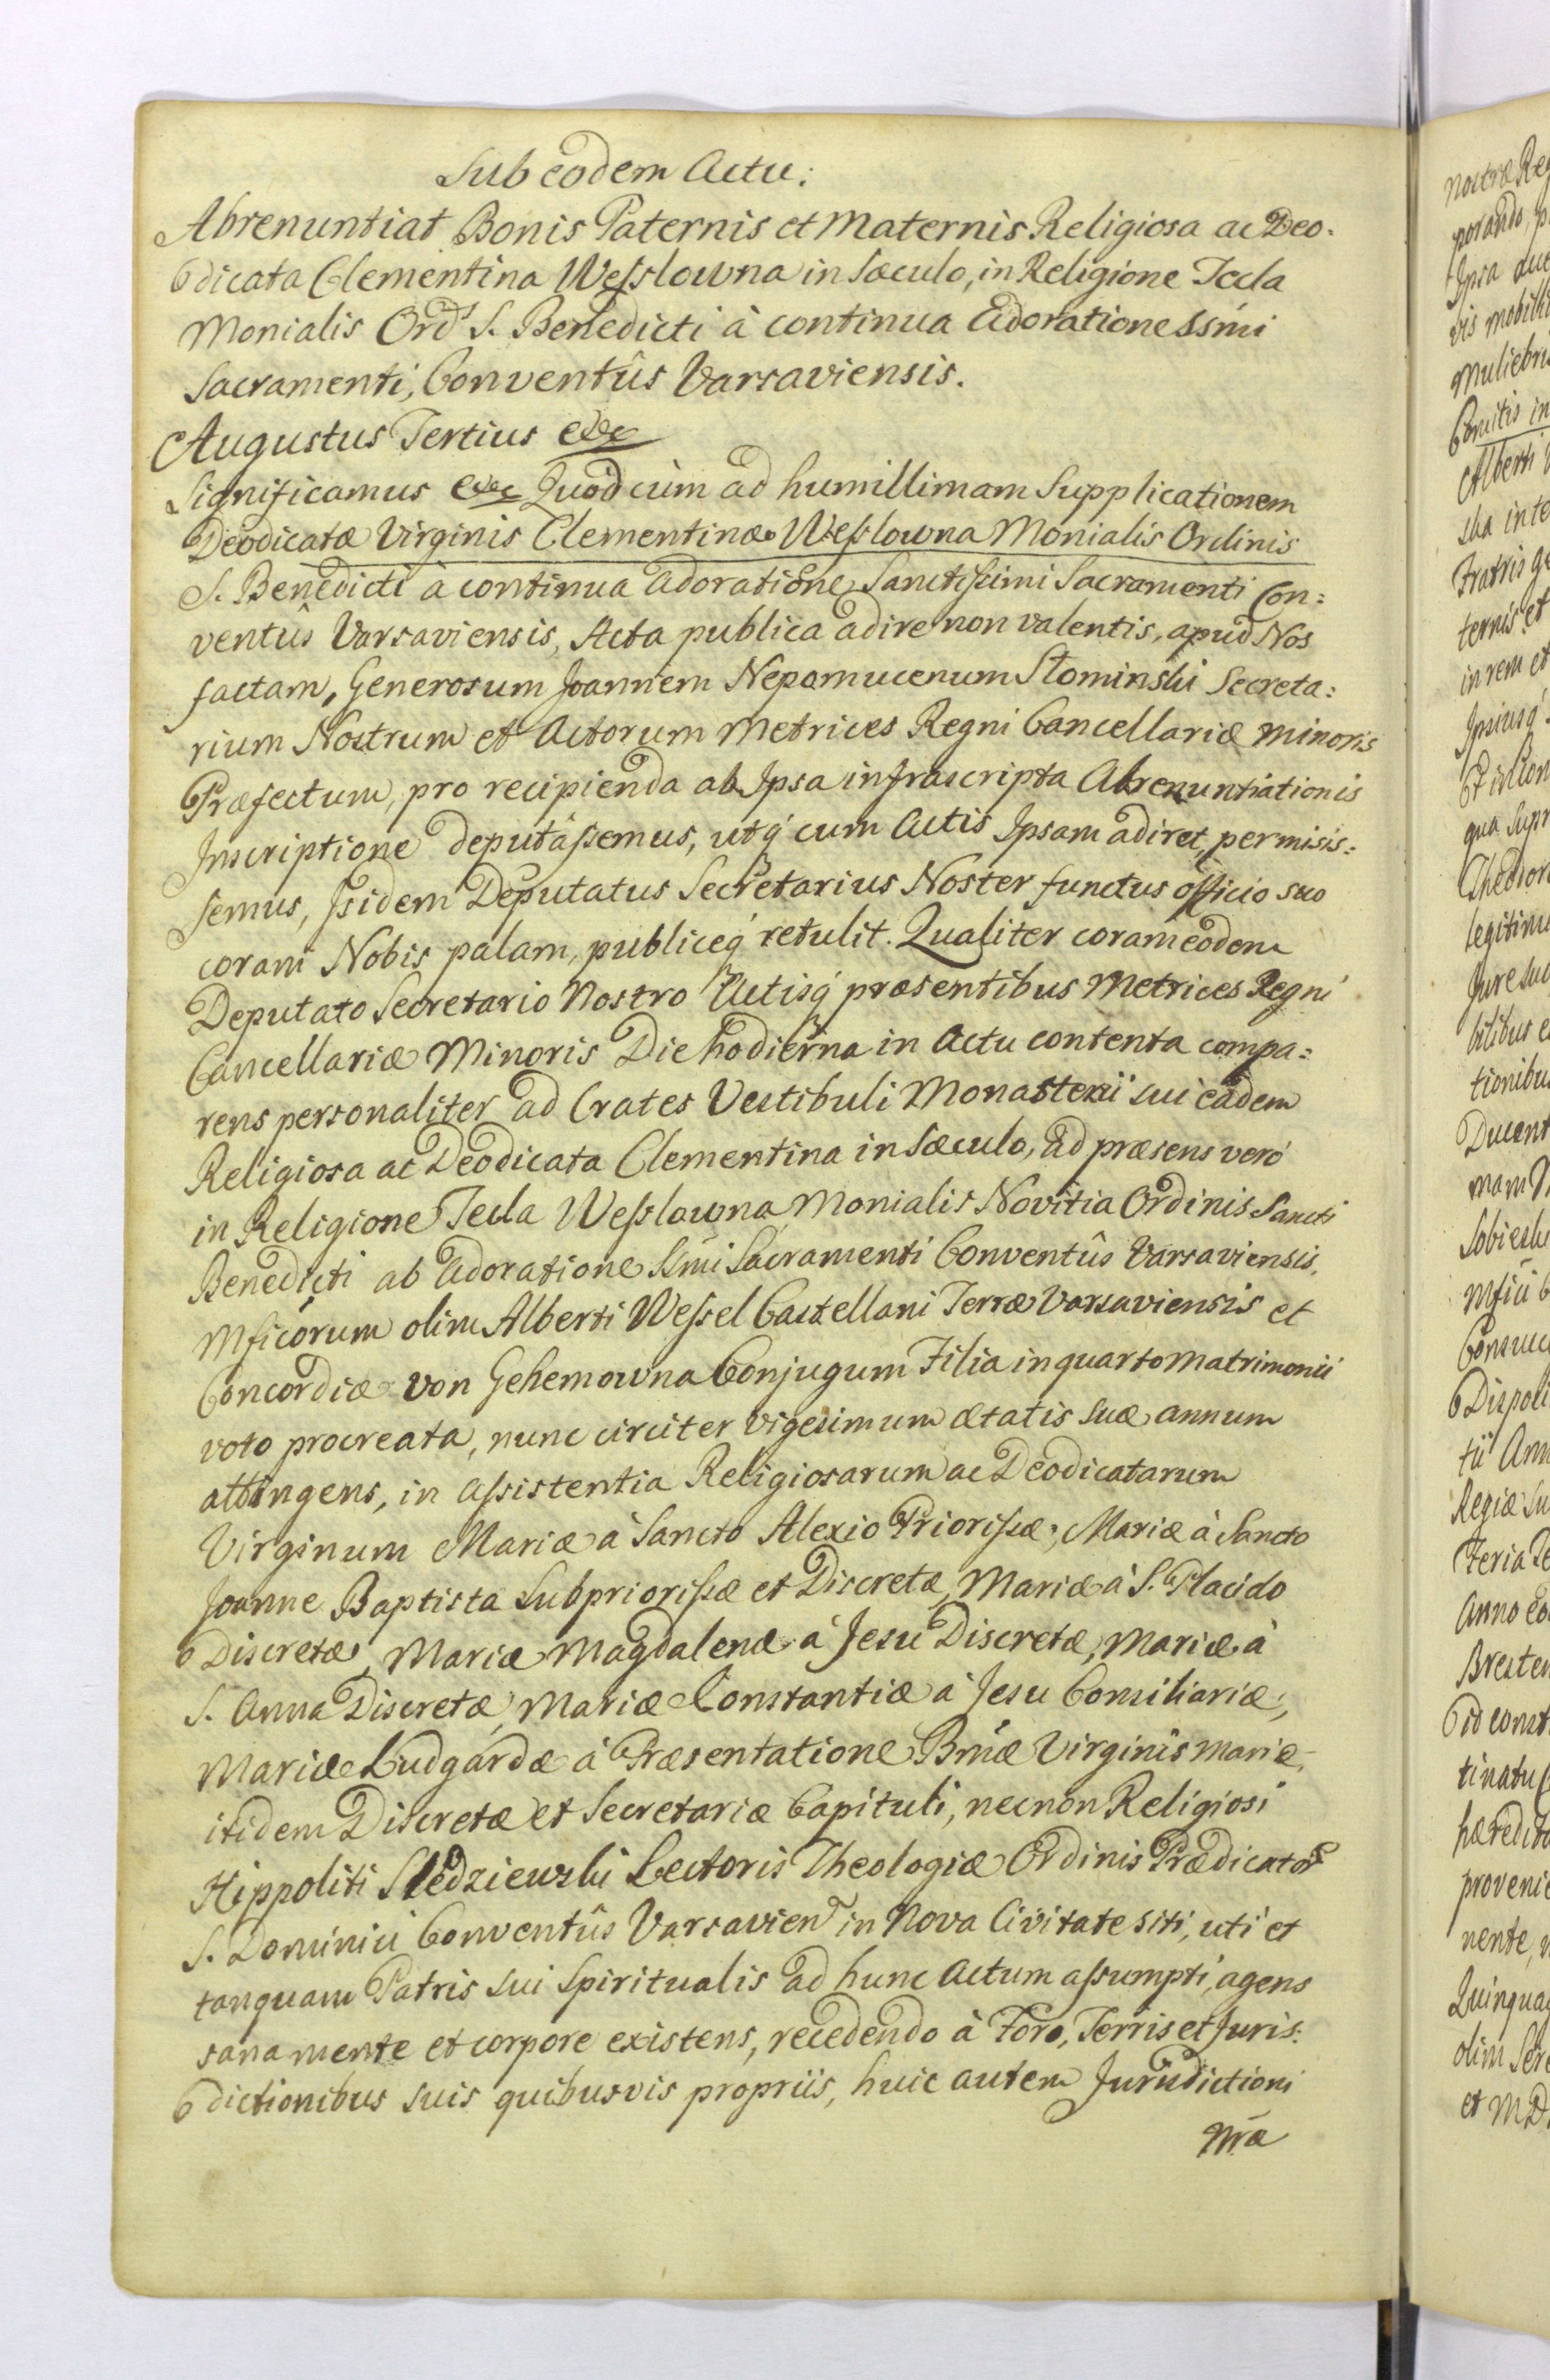 Sub eodem Actu:
Abrenuntiat Bonis Paternis et Maternis Religiosa ac Deo-
dicata Clementina Wesslowna in Sæculo, in Religione Tecla
Monialis Ord. S. Benedicti à continua Adoratione SSmi
Sacramenti, Conventûs Varsaviensis.
Augustus Tertius etc
Significamus etc Quòd cùm ad humillimam Supplicationem
Deodicatæ Virginis Clementinæ Wesslowna Monialis Ordinis
S. Benedicti à continua Adoratione Sanctissimi Sacramenti Con:
ventûs Varsaviensis, Acta publica adire non valentis, apud Nos
factam, Generosum Joannem Nepomucenum Słominski Secreta:
rium Nostrum et Actorum Metrices Regni Cancellariæ minoris
Præfectum, pro recipienda ab Ipsa infrascripta Abrenuntiationis
Inscriptione deputâssemus, utq́ cum Actis Ipsam adiret, permisis:
semus, Isidem Deputatus Secretarius Noster functus officio suo
coram Nobis palam, publiceq́ retulit. Qualiter coram eodem
Deputato Secretario Nostro Actisq́ præsentibus Metrices Regni
Cancellariæ Minoris Die hodierna in Actu contenta compa:
rens personaliter ad Crates Vestibuli Monasterii sui eadem
Religiosa ac Deodicata Clementina in Sæculo, ad præsens verò
in Religione Tecla Wesslowna Monialis Novitia Ordinis Sancti
Benedicti ab Adoratione SSmi Sacramenti Conventûs Varsaviensis,
Mficorum olim Alberti Wessel Castellani Terræ Varsaviensis et
Concordiæ von Gehemowna Conjugum Filia in quarto matrimonii
voto procreata, nunc circiter vigesimum ætatis suæ annum
attingens, in assistentia Religiosarum ac Deodicatarum
Virginum Mariæ à Sancto Alexio Priorissæ, Mariæ à Sancto
Joanne Baptista Subpriorissæ et Discretæ, Mariæ à S. Placido
Discretæ, Mariæ Magdalenæ à Jesu Discretæ, Mariæ à
S. Anna Discretæ, Mariæ Constantiæ à Jesu Consiliariæ,
Mariæ Ludgardæ à Præsentatione Bmæ Virginis Mariæ
itidem Discretæ et Secretariæ Capituli, necnon Religiosi
Hippoliti Sledziewski Lectoris Theologiæ Ordinis Prædicator
S. Dominici Conventûs Varsavien in Nova Civitate siti, uti et
tanquam Patris sui Spiritualis ad hunc Actum assumpti, agens
sana mente et corpore existens, recedendo à Foro, Terris et Juris:
dictionibus suis quibusvis propriis, huic autem Jurisdictioni
nræ